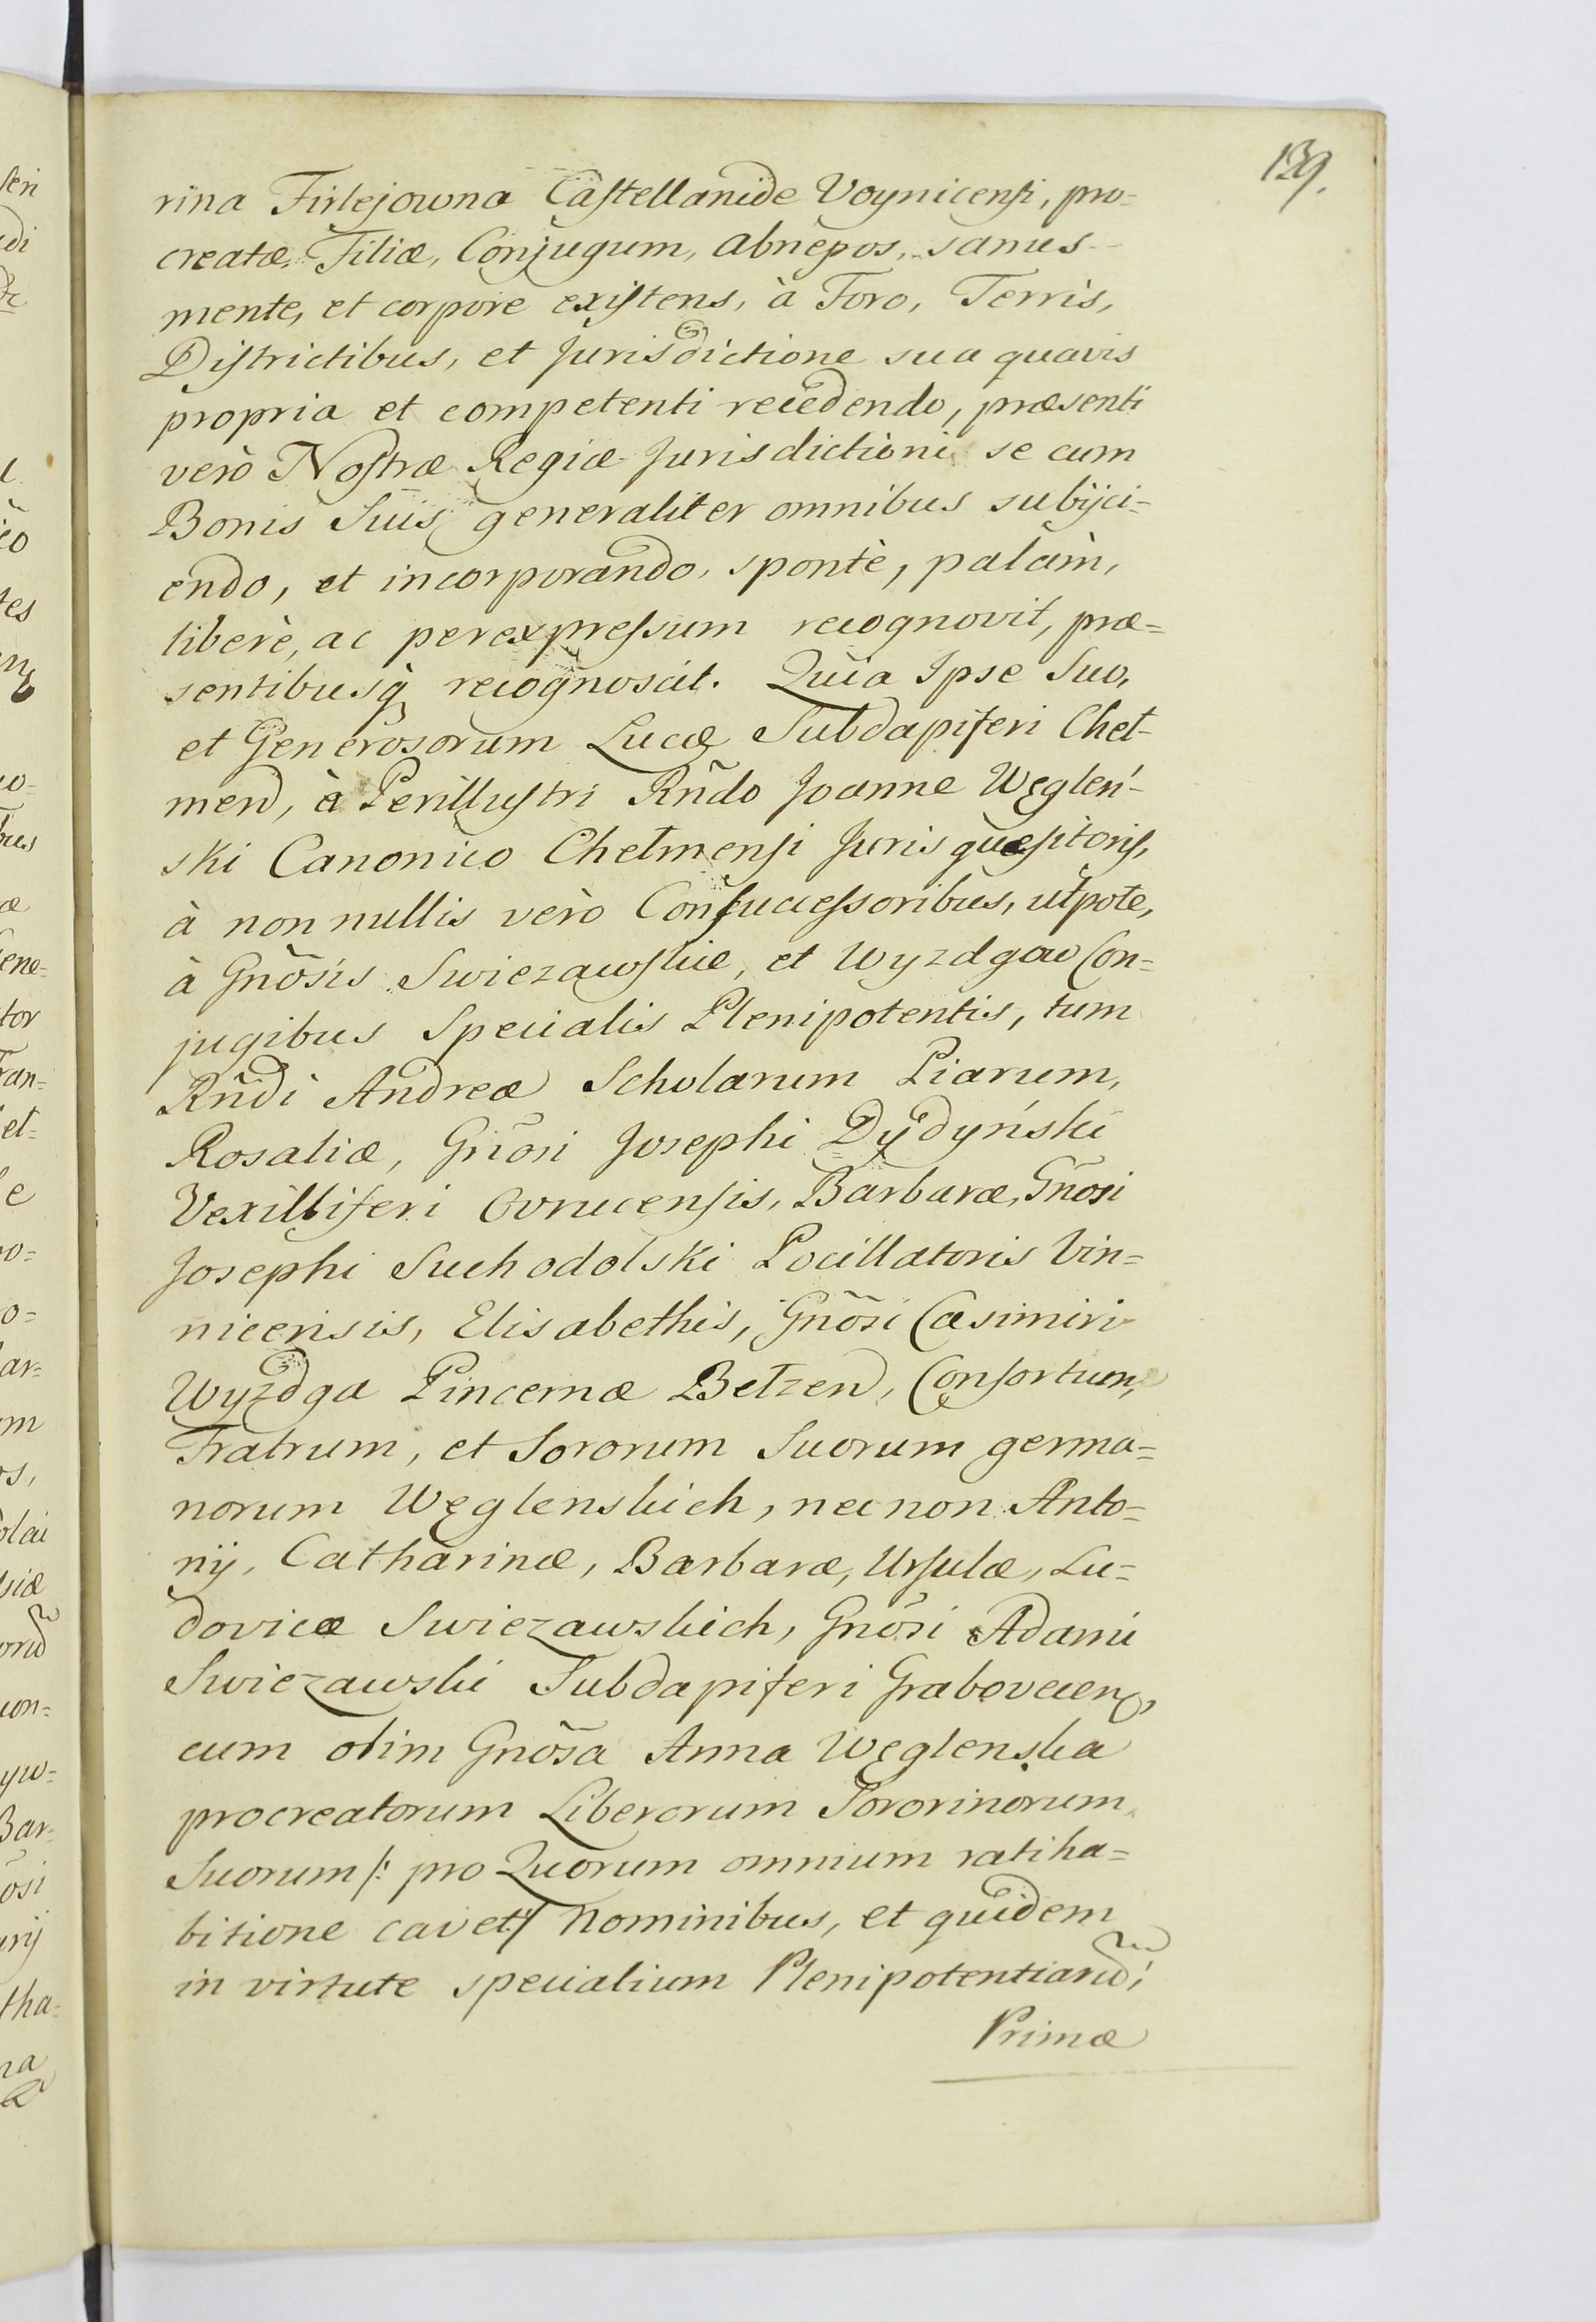 139.
rina Firlejowna Castellanide Voynicensi, pro=
creatæ, Filiæ, Conjugum, abnepos, sanus
mente, et corpore existens, à Foro, Terris,
Districtibus, et Jurisdictione sua quavis
propria et competenti recedendo, præsenti
verò Nostræ Regiæ Jurisdictioni se cum
Bonis Suis generaliter omnibus subijci=
endo, et incorporando, spontè, palàm,
liberè, ac perexpressum recognovit, præ=
sentibusq recognoscit. Quia Ipse Suo,
et Generosorum Lucæ Subdapiferi Cheł-
men, à Perillustri Rñdo Joanne Węgleń-
ski Canonico Chełmensi Juris quæsitoris,
à non nullis verò Consuccessoribus, utpote,
à Gnõsis Swiezawskie, et Wyzdgow Con=
jugibus Specialis Plenipotentis, tum
Rñdi Andreæ Scholarum Piarum,
Rosaliæ, Gnõsi Josephi Dydyński
Vexilliferi Ovrucensis, Barbaræ, Gnõsi
Josephi Suchodolski Pocillatoris Vin=
nicensis, Elisabethis, Gnõsi Casimiri
Wyzdga Pincernæ Bełzen, Consortum,
Fratrum, et Sororum Suorum germa=
norum Węglenskich, nec non Anto=
nij, Catharinæ, Barbaræ, Ursulæ, Lu=
dovicæ Swiezawskich, Gnõsi Adami
Swiezawski Subdapiferi Grabovecen,
cum olim Gnõsa Anna Węglenska
procreatorum Liberorum Sororinorum
Suorum /: pro Quorum omnium ratiha=
bitione cavet :/ Nominibus, et quidem
in virtute specialium Plenipotentiarũ;
Primæ